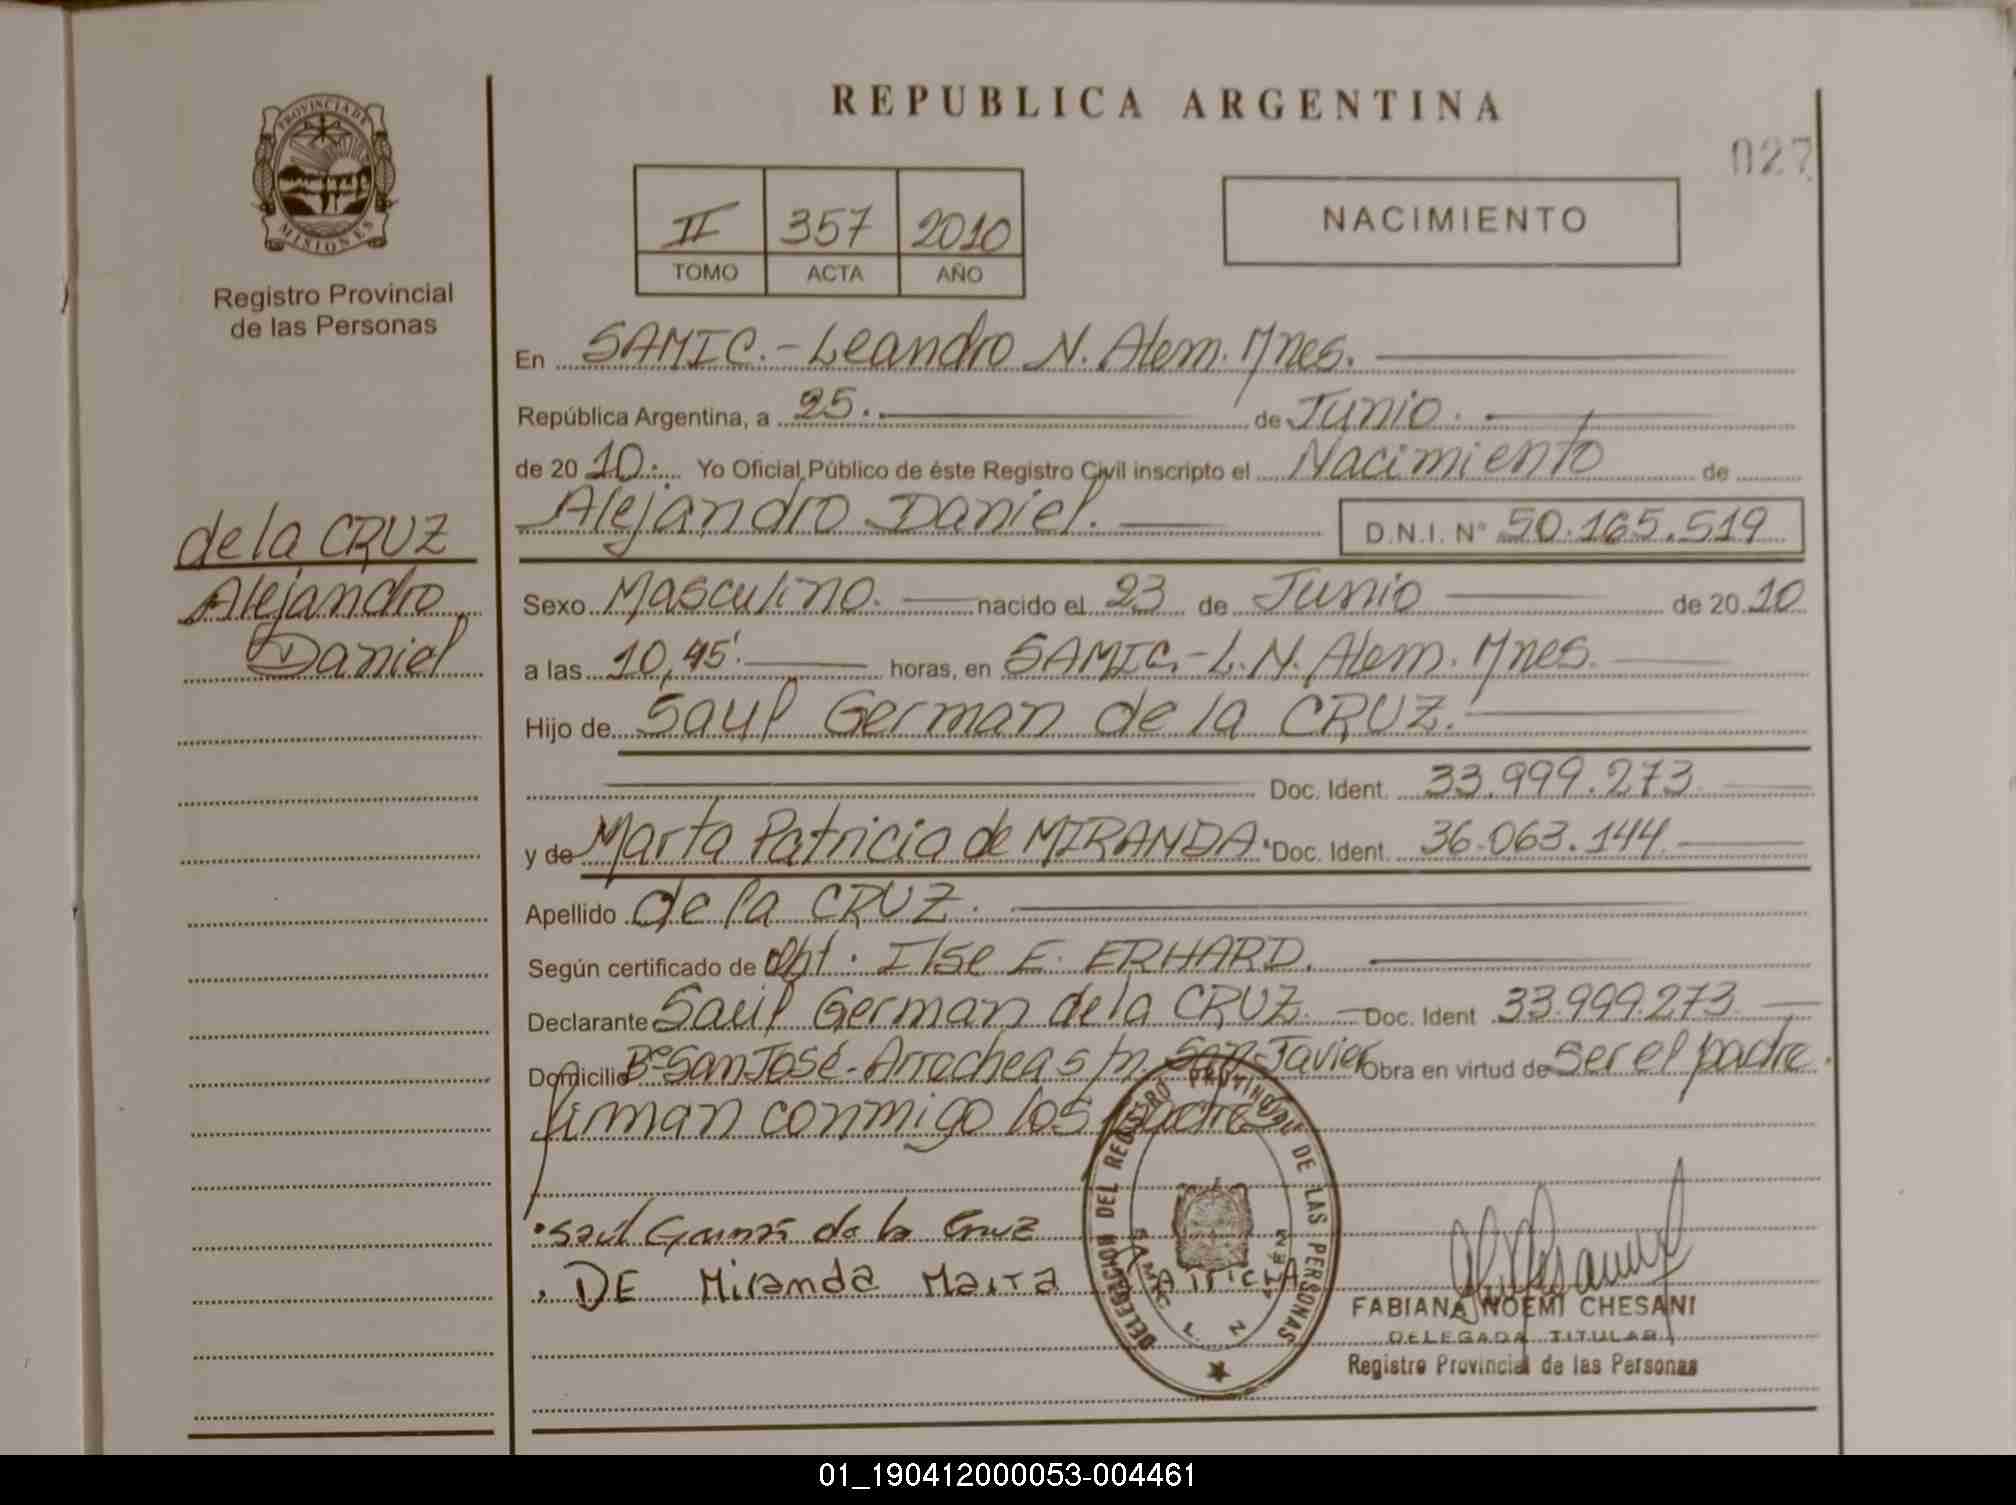 REPUBLICA ARGENTINA
027
PROVINCIA DE
MISIONES
Registro Provincial
de las Personas
II 357 2010
TOMO ACTA AÑO
NACIMIENTO
En SAMIC.- Leandro N. Alem. Mnes.
República Argentina, a 25. de Junio.
de 20 10. Yo Oficial Público de éste Registro Civil inscripto el Nacimiento de
Alejandro Daniel. D.N.I. N° 50.165.519
de la CRUZ
Alejandro
Daniel
Sexo Masculino. nacido el 23 de Junio de 20 10
a las 10,45'. horas, en SAMIC.- L.N. Alem. Mnes.
Hijo de Saul German de la CRUZ.
Doc. Ident. 33.999.273
y de Marta Patricia de MIRANDA. Doc. Ident. 36.063.144
Apellido de la CRUZ.
Según certificado de Obt. Ilse E. ERHARD.
Declarante Saúl German de la CRUZ. Doc. Ident 33.999.273
Domicilio B° San José- Arrochea s/n. San Javier Obra en virtud de ser el padre.
firman conmigo los padres
Saúl German de la Cruz
DE Miranda Marta Patricia
DELEGACION DEL REGISTRO PROVINCIAL DE LAS PERSONAS
FABIANA NOEMI CHESANI
DELEGADA TITULAR
Registro Provincial de las Personas
01_190412000053-004461